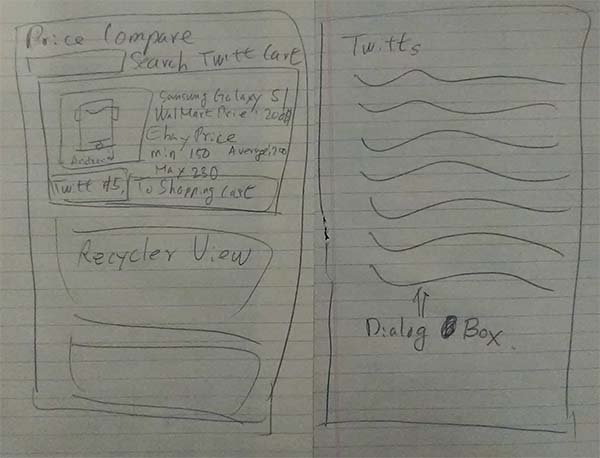 Price Compare
Search Twitt Cart
Samsung Galaxy S1
WalMart Price: 200$
Ebay Price
min 150 Average: 200
Max 230
Android
Twitt #5, To Shopping Cart
Recycler View
Twitts
Dialog Box.